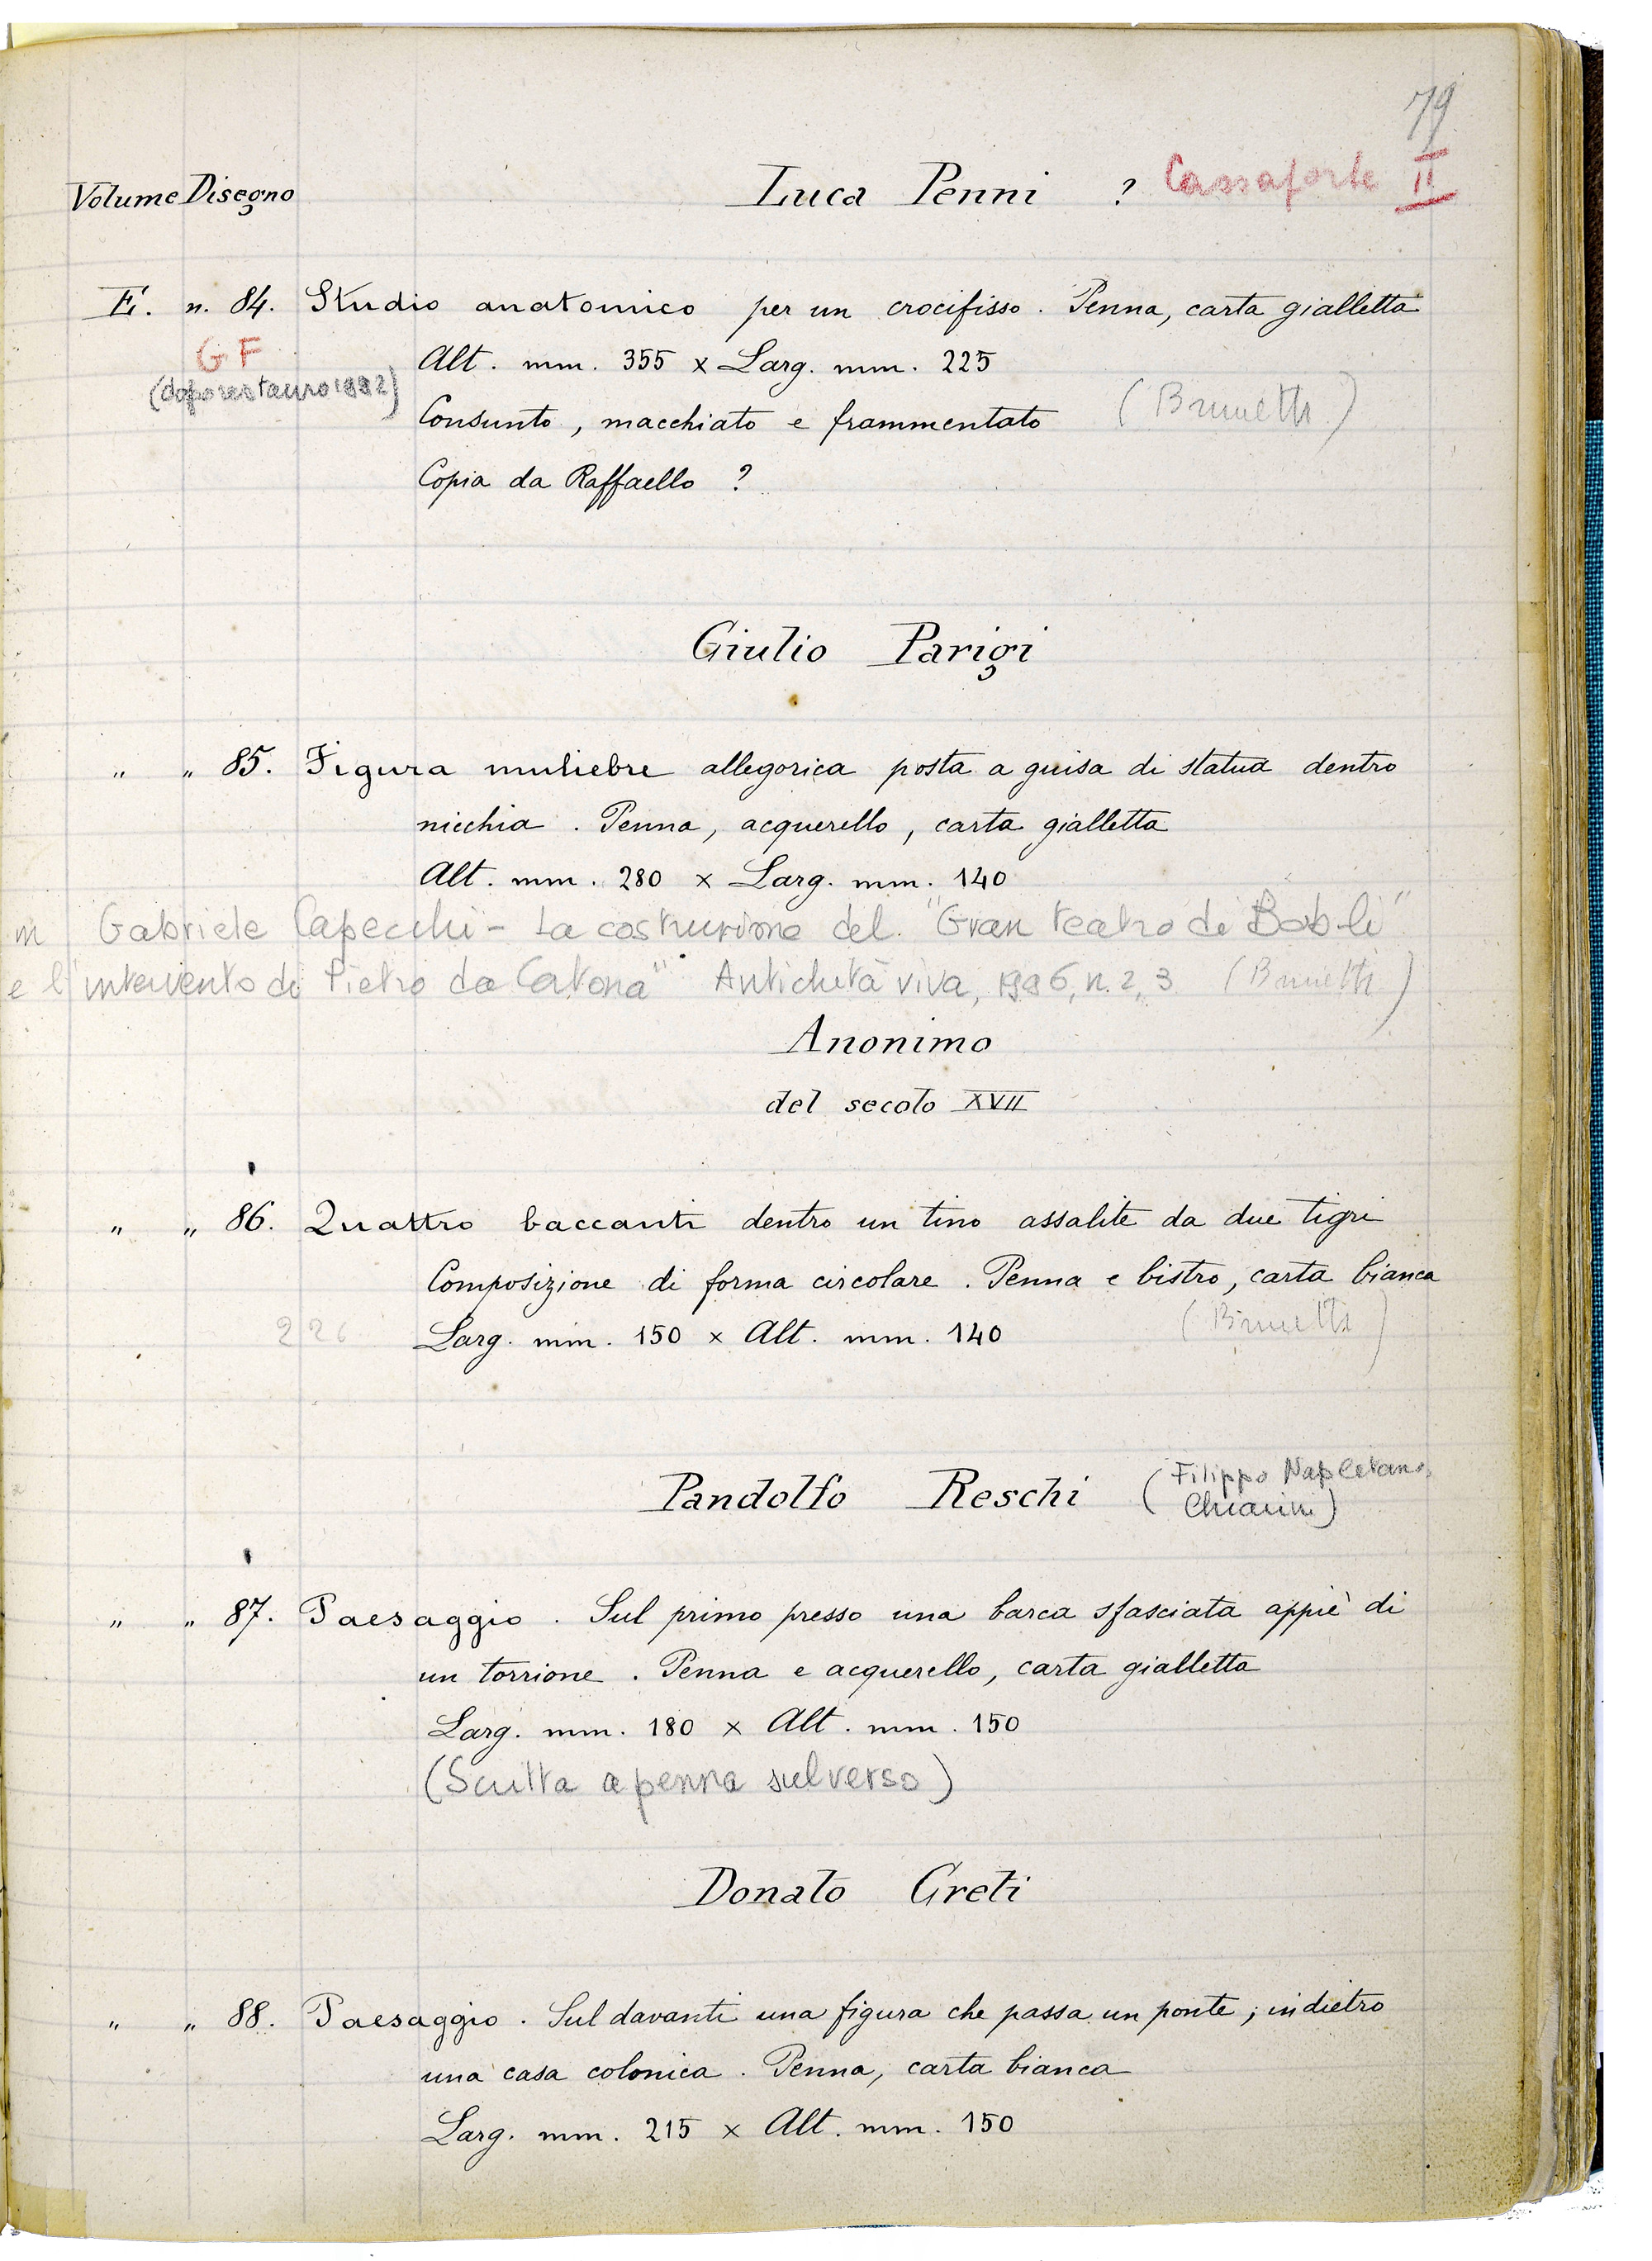 79
Volume Disegno
Luca Penni ? Cassaforte II
E. n. 84. Studio anatomico per un crocifisso. Penna, carta gialletta
GF
Alt. mm. 355 x Larg. mm. 225
(dopo restauro 1982)
Consunto, macchiato e frammentato (Brunetti)
Copia da Raffaello ?
Giulio Parigi
" " 85. Figura muliebre allegorica posta a guisa di statua dentro
nicchia. Penna, acquerello, carta gialletta
Alt. mm. 280 x Larg. mm. 140
in Gabriele Capecchi - La costruzione del "Gran teatro di Boboli"
e l'intervento di Pietro da Cortona" Antichità viva, 1996, n. 2, 3 (Brunetti)
Anonimo
del secolo XVII
" " 86. Quattro baccanti dentro un tino assalite da due tigri
Composizione di forma circolare. Penna e bistro, carta bianca
226 Larg. mm. 150 x Alt. mm. 140 (Brunetti)
Pandolfo Reschi (Filippo Napoletano
Chiarini)
" " 87. Paesaggio. Sul primo presso una barca sfasciata appiè di
un torrione. Penna e acquerello, carta gialletta
Larg. mm. 180 x Alt. mm. 150
(Scritta a penna sul verso)
Donato Creti
" " 88. Paesaggio. Sul davanti una figura che passa un ponte; indietro
una casa colonica. Penna, carta bianca
Larg. mm. 215 x Alt. mm. 150